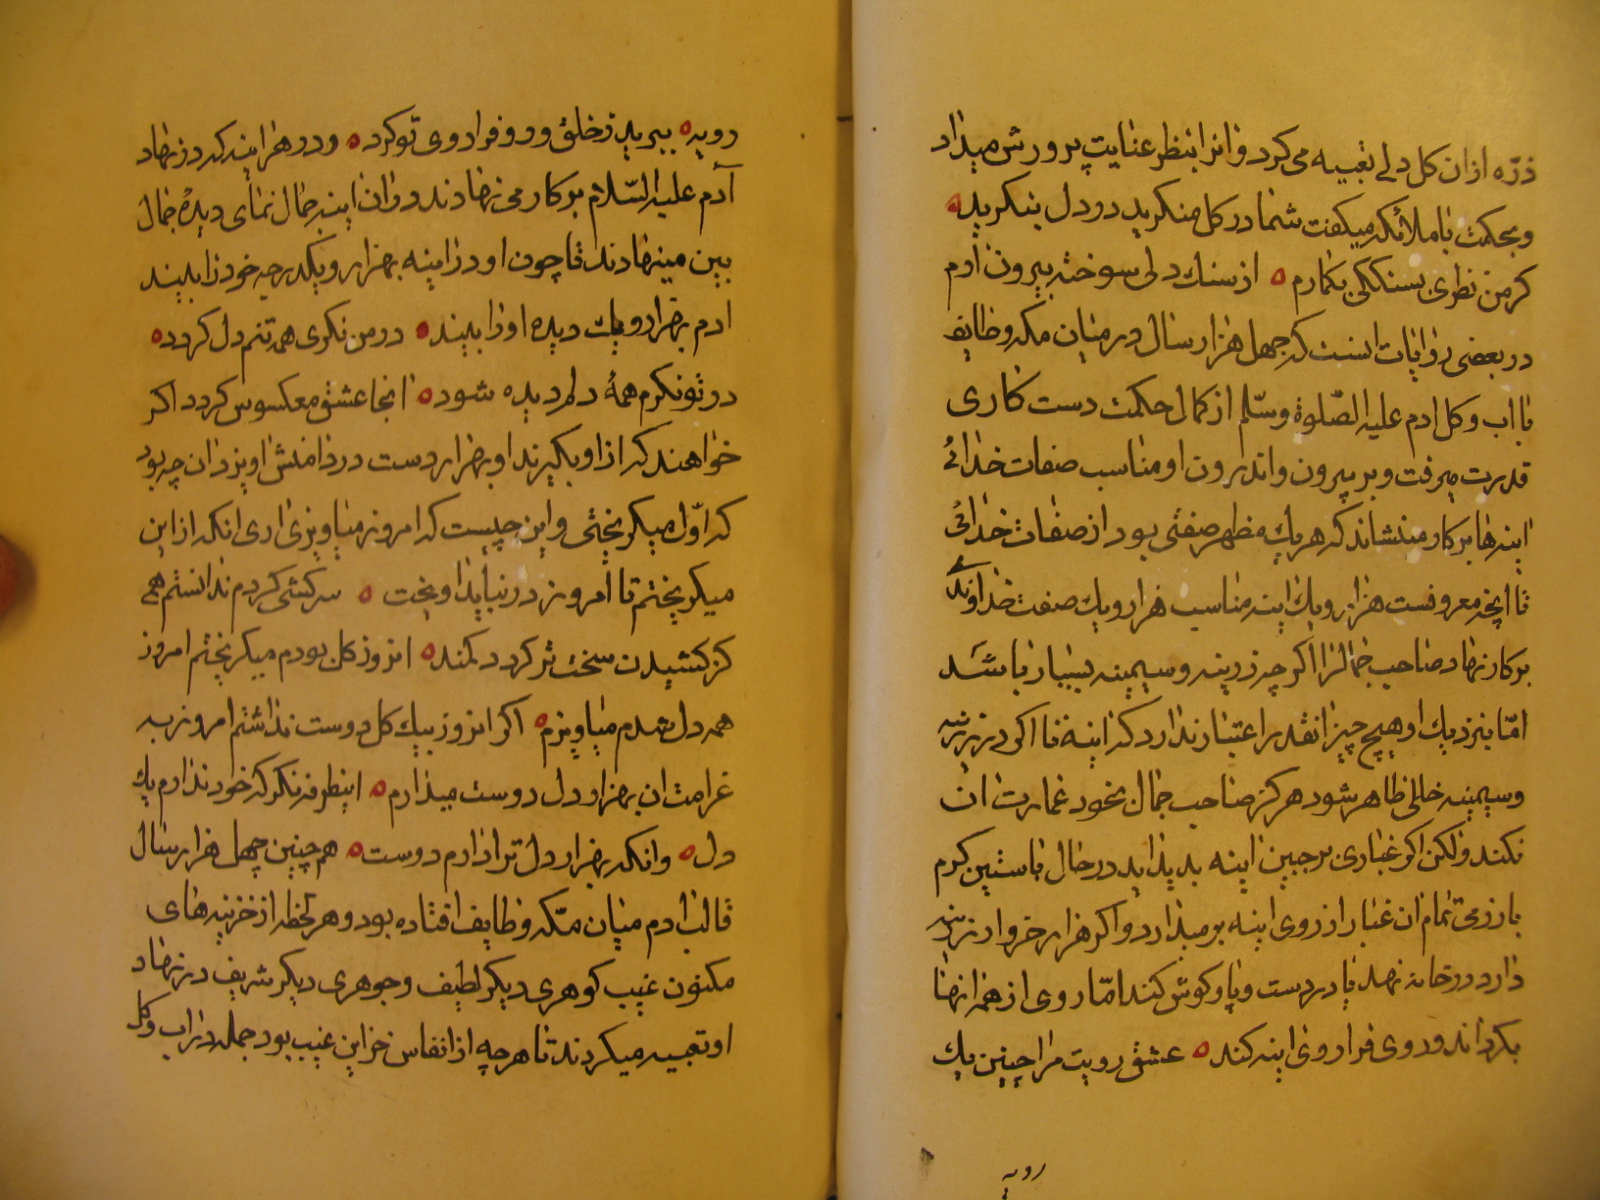 ذرّه از ان كل دلی تعبیه می کرد و انرا بنظر عنایت پرورش میداد
و بحکمت با ملائکه میکفت شما در کل منکرید در دل بنکرید
کر من نظری بسنک کلی بکمارم از سنک دلی سوخته بیرون ارم
در بعضی روایات انست که چهل هزار سال در میان مکه و طایف
با اب و کل ادم علیه الصّلوة و سلّم از کمال حکمت دست کاری
قدرت میرفت و بر بیرون و اندرون او مناسب صفات خدائی
اینه ها بر کار مینشاند که هر یك مظهر صفتی بود از صفات خدائی
تا انچه معروفست هزار و یك اینه مناسب هزار و یك صفت خداوندی
بر کار نهاد صاحب جمالرا اکر چه زرینه و سیمینه بسیار باشد
امّا بنزدیك او هیچ چیز انقدر اعتبار ندارد که اینه تا اکر در زرینه
و سیمینه خللی ظاهر شود هرکز صاحب جمال بخود عمارت ان
نکند ولکن اکر غباری بر جبین اینه بدید اید در حال باستین کرم
بازرمی تمام ان غبار از روی اینه بر میدارد و اکر هزار خروار زرینه
دارد در خانه نهد یا در دست و پا و کوش کند امّا روی از همه انها
بکرداند و روی فرا روی اینه کند عشق رویت مرا چنین یك
رویه
رویه ببرید ز خلق و رو فرا روی تو کرد و در هر اینه که در نهاد
آدم علیه السّلام بر کار می نهادند در ان اینه جمال نمای دیدهٔ جمال
بین مینهادند تا چون او در اینه بهزار و یکدریچه خود را بیند
ادم بهزار و یك دیده او را بیند در من نکری همه تنم دل کردد
در تو نکرم همهٔ دلم دیده شود انجا عشق معکوس کردد اکر
خواهند که از او بکریزند او بهزار دست در دامنش اویزد ان چه بود
که اوّل میکریختی و این چیست که امروز میاویزی اری انکه از این
میکریختم تا امروز در نباید اویخت سرکشی کردم ندانستم همی
کز کشیدن سخت تر کردد کمند انروز کل بودم میکریختم امروز
همه دل شدم میاویزم اکر انروز بیك کل دوست نداشتم امروز به
غرامت ان بهزار دل دوست میدارم اینطرفه نکر که خود ندارم یك
دل وانکه بهزار دل ترا دارم دوست همچنین چهل هزار سال
قالب ادم میان مکّه و طایف افتاده بود و هر لحظه از خزینه های
مکنون غیب کوهری دیکر لطیف و جوهری دیکر شریف در نهاد
او تعبیه میکردند تا هرچه از انفاس خزاین غیب بود جمله در اب و کل